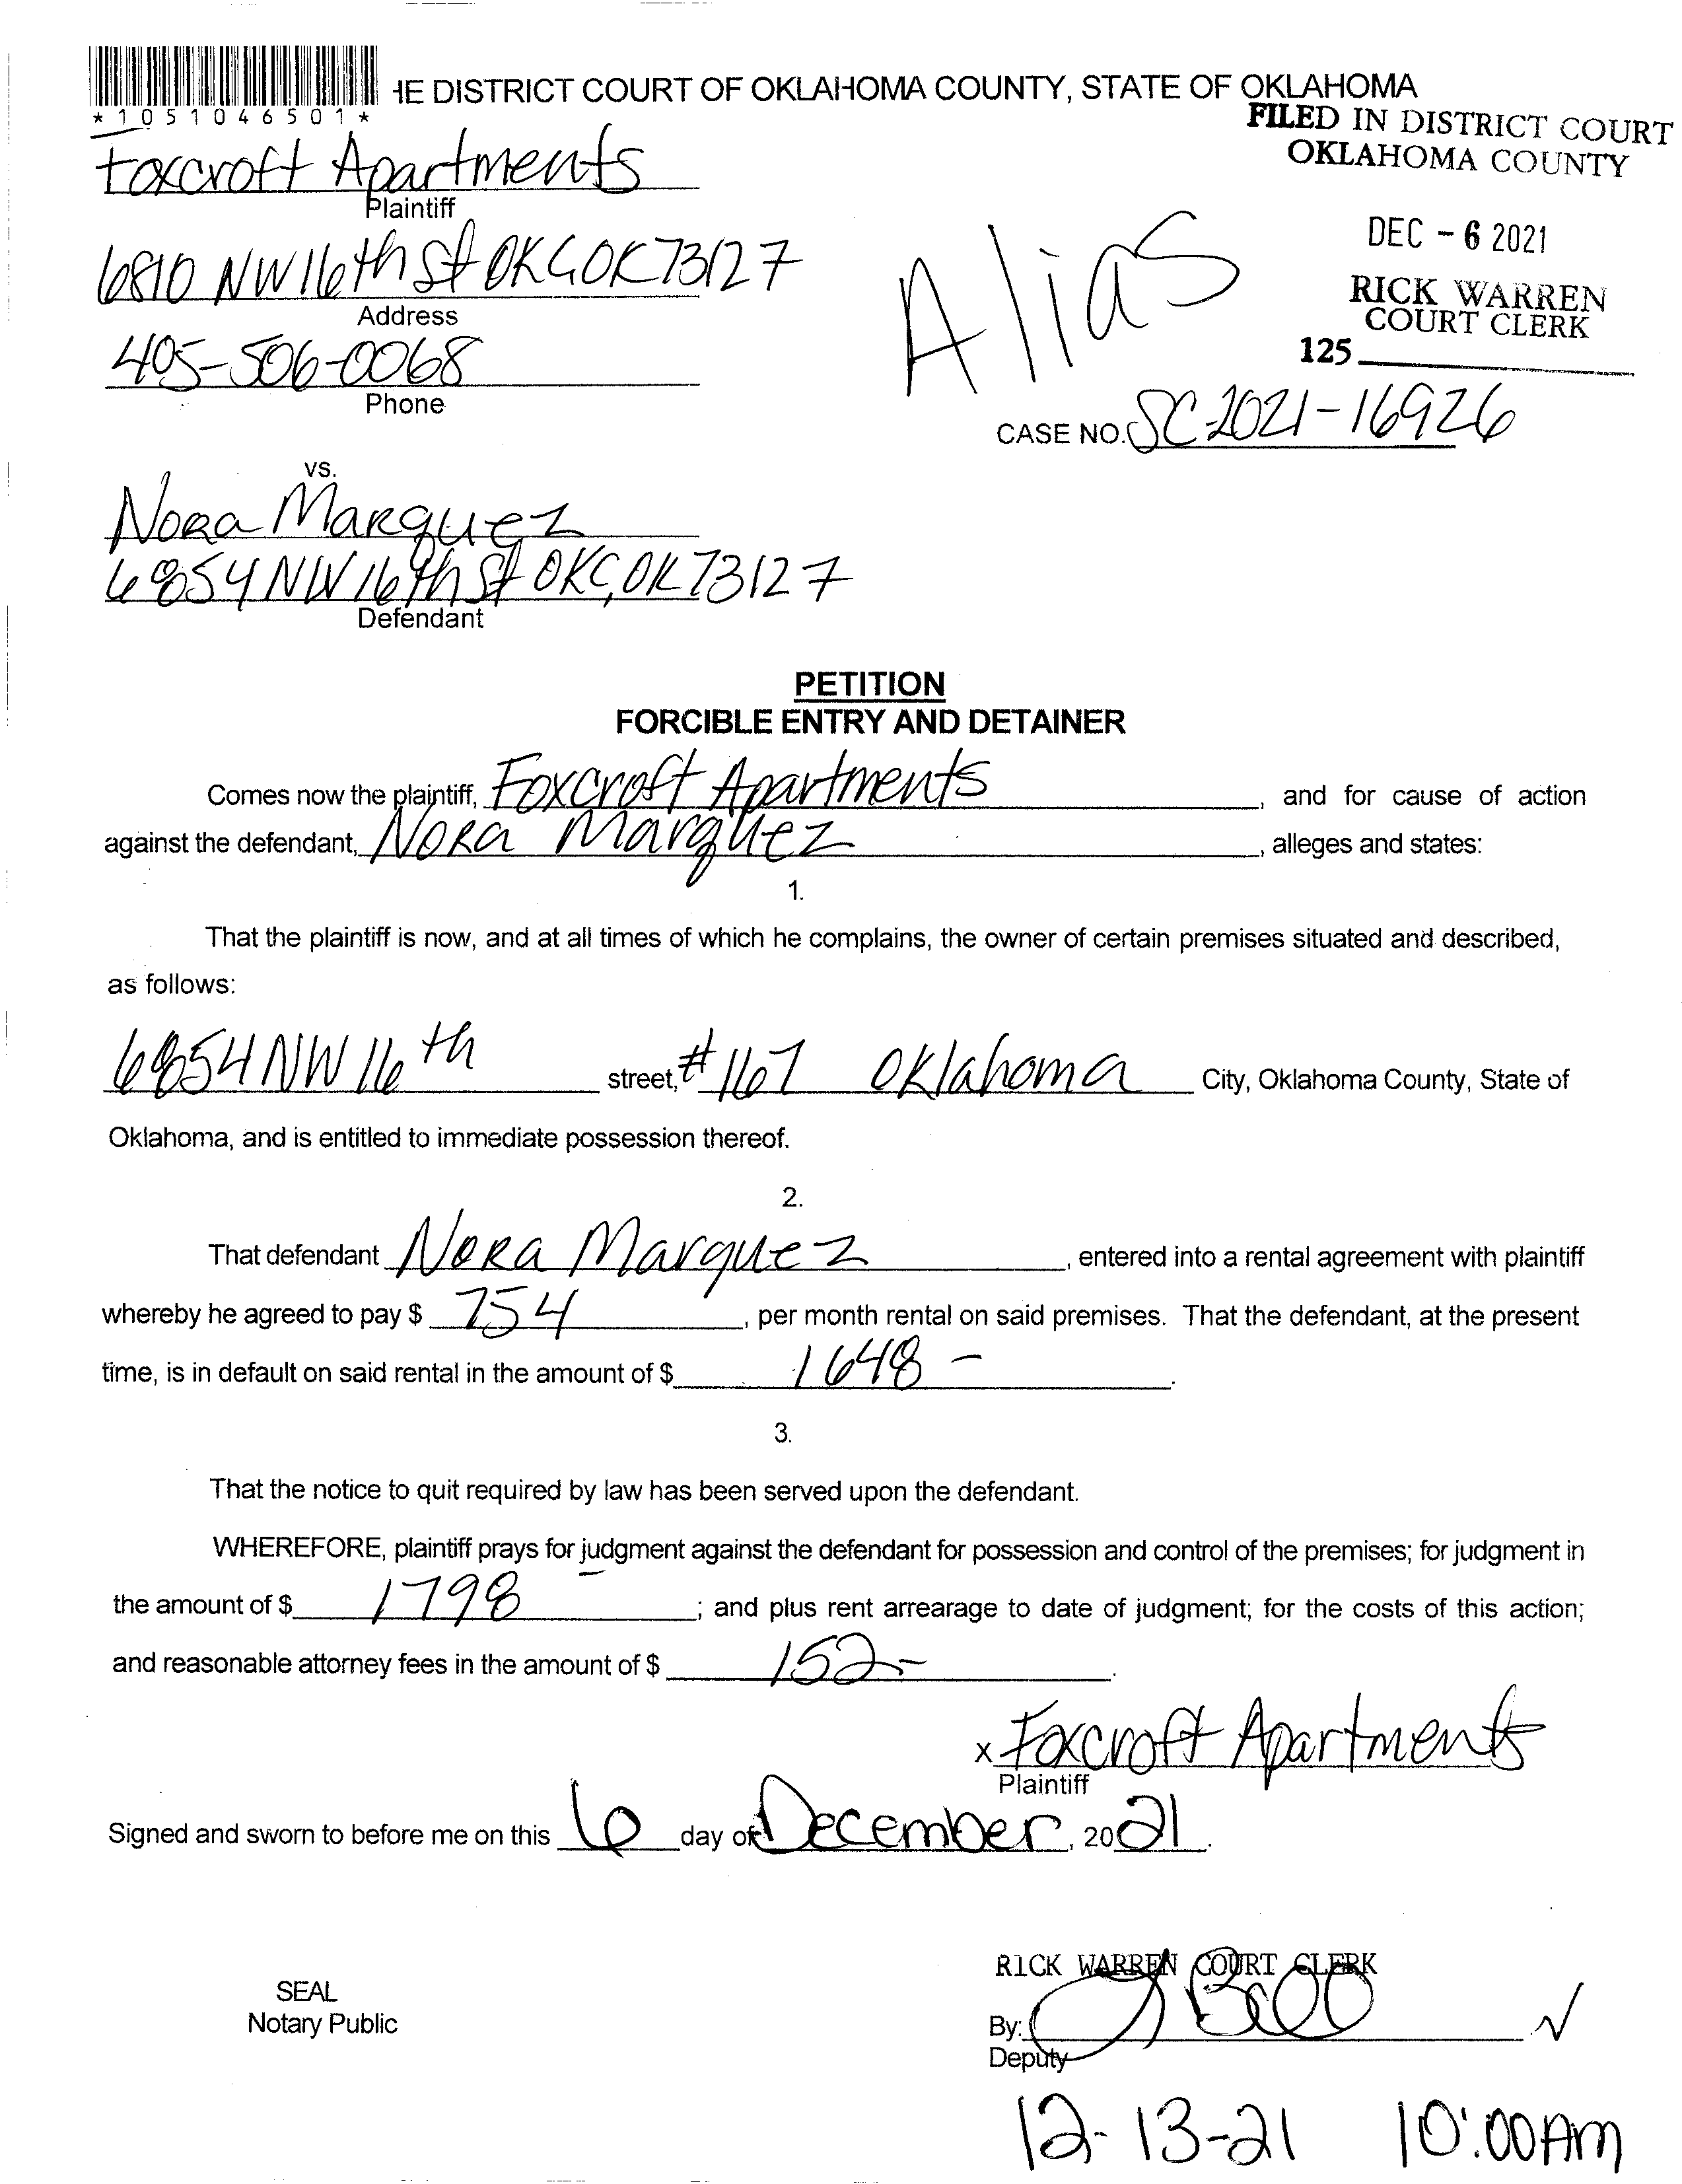 HE DISTRICT COURT OF OKLAHOMA COUNTY, STATE OF OKLAHOMA
*1051046501*
FILED IN DISTRICT COURT
OKLAHOMA COUNTY
Foxcroft Apartments
Plaintiff
DEC - 6 2021
6810 NW 16th St OKC OK 73127
Address
Alias
RICK WARREN
COURT CLERK
125
405-506-0068
Phone
CASE NO. SC-2021-16926
vs.
Nora Marquez
6854 NW 16th St OKC, OK 73127
Defendant
PETITION
FORCIBLE ENTRY AND DETAINER
Comes now the plaintiff, Foxcroft Apartments, and for cause of action
against the defendant, Nora Marquez, alleges and states:
1.
That the plaintiff is now, and at all times of which he complains, the owner of certain premises situated and described,
as follows:
6854 NW 16th street, #167 Oklahoma City, Oklahoma County, State of
Oklahoma, and is entitled to immediate possession thereof.
2.
That defendant Nora Marquez, entered into a rental agreement with plaintiff
whereby he agreed to pay $ 754, per month rental on said premises. That the defendant, at the present
time, is in default on said rental in the amount of $ 1648 -.
3.
That the notice to quit required by law has been served upon the defendant.
WHEREFORE, plaintiff prays for judgment against the defendant for possession and control of the premises; for judgment in
the amount of $ 1798 -; and plus rent arrearage to date of judgment; for the costs of this action;
and reasonable attorney fees in the amount of $ 152-.
x Foxcroft Apartments
Plaintiff
Signed and sworn to before me on this 6 day of December, 2021.
RICK WARREN COURT CLERK
SEAL
Notary Public
By:
Deputy
12-13-21 10:00AM